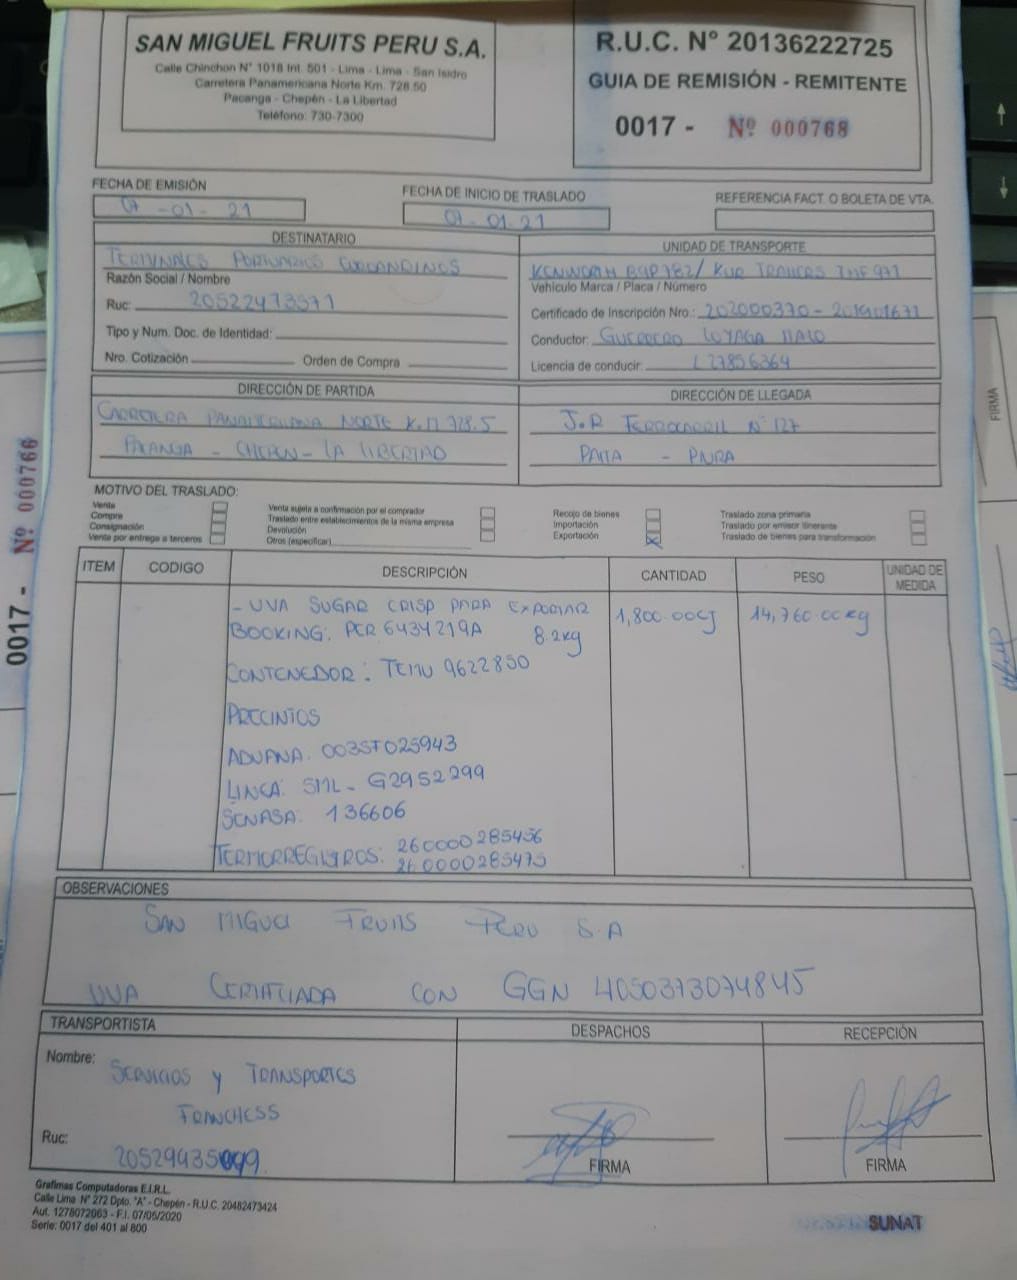 SAN MIGUEL FRUITS PERU S.A.
Calle Chinchon N° 1018 Int. 501 - Lima - Lima - San Isidro
Carretera Panamericana Norte Km. 728.50
Pacanga - Chepén - La Libertad
Teléfono: 730-7300
R.U.C. N° 20136222725
GUIA DE REMISIÓN - REMITENTE
0017 - Nº 000768
FECHA DE EMISIÓN
07 - 01 - 21
FECHA DE INICIO DE TRASLADO
07-01-21
REFERENCIA FACT. O BOLETA DE VTA.
DESTINATARIO
TERMINALES PORTUARIOS EUROANDINOS
Razón Social / Nombre
Ruc: 20522473571
Tipo y Num. Doc. de Identidad:
Nro. Cotización Orden de Compra
UNIDAD DE TRANSPORTE
KENWORTH / THF 971
Vehículo Marca / Placa / Número
Certificado de Inscripción Nro.: 202000370 - 201901671
Conductor: GUERRERO LOYAGA ITALO
Licencia de conducir: L27856364
DIRECCIÓN DE PARTIDA
CARRETERA PANAMERICANA NORTE K.M 728.5
PACANGA - CHEPEN - LA LIBERTAD
DIRECCIÓN DE LLEGADA
J.R FERROCARRIL N° 127
PAITA - PIURA
MOTIVO DEL TRASLADO:
Venta
Compra
Consignación
Venta por entrega a terceros
Venta sujeta a confirmación por el comprador
Traslado entre establecimientos de la misma empresa
Devolución
Otros (especificar)
Recojo de bienes
Importación
Exportación X
Traslado zona primaria
Traslado por emisor itinerante
Traslado de bienes para transformación
ITEM CODIGO DESCRIPCIÓN CANTIDAD PESO UNIDAD DE MEDIDA
- UVA SUGAR CRISP PARA EXPORTAR 1,800.00CJ 14,760.00Kg
BOOKING: PER 6434219A 8.2kg
CONTENEDOR: TEMU 9622850
PRECINTOS
ADUANA: 003ST025943
LINEA: SML - G2952299
SENASA: 136606
TERMORREGISTROS: 260000285456
260000285475
OBSERVACIONES
SAN MIGUEL FRUITS PERU S.A
UVA CERTIFICADA CON GGN 4050373074845
TRANSPORTISTA
Nombre: SERVICIOS Y TRANSPORTES
FRANCHESS
Ruc: 20529935099
DESPACHOS
FIRMA
RECEPCIÓN
FIRMA
Grafimas Computadoras E.I.R.L.
Calle Lima N° 272 Dpto. "A" - Chepén - R.U.C. 20482473424
Aut. 1278072063 - F.I. 07/05/2020
Serie: 0017 del 401 al 800
SUNAT
0017 - Nº 000766
FIRMA